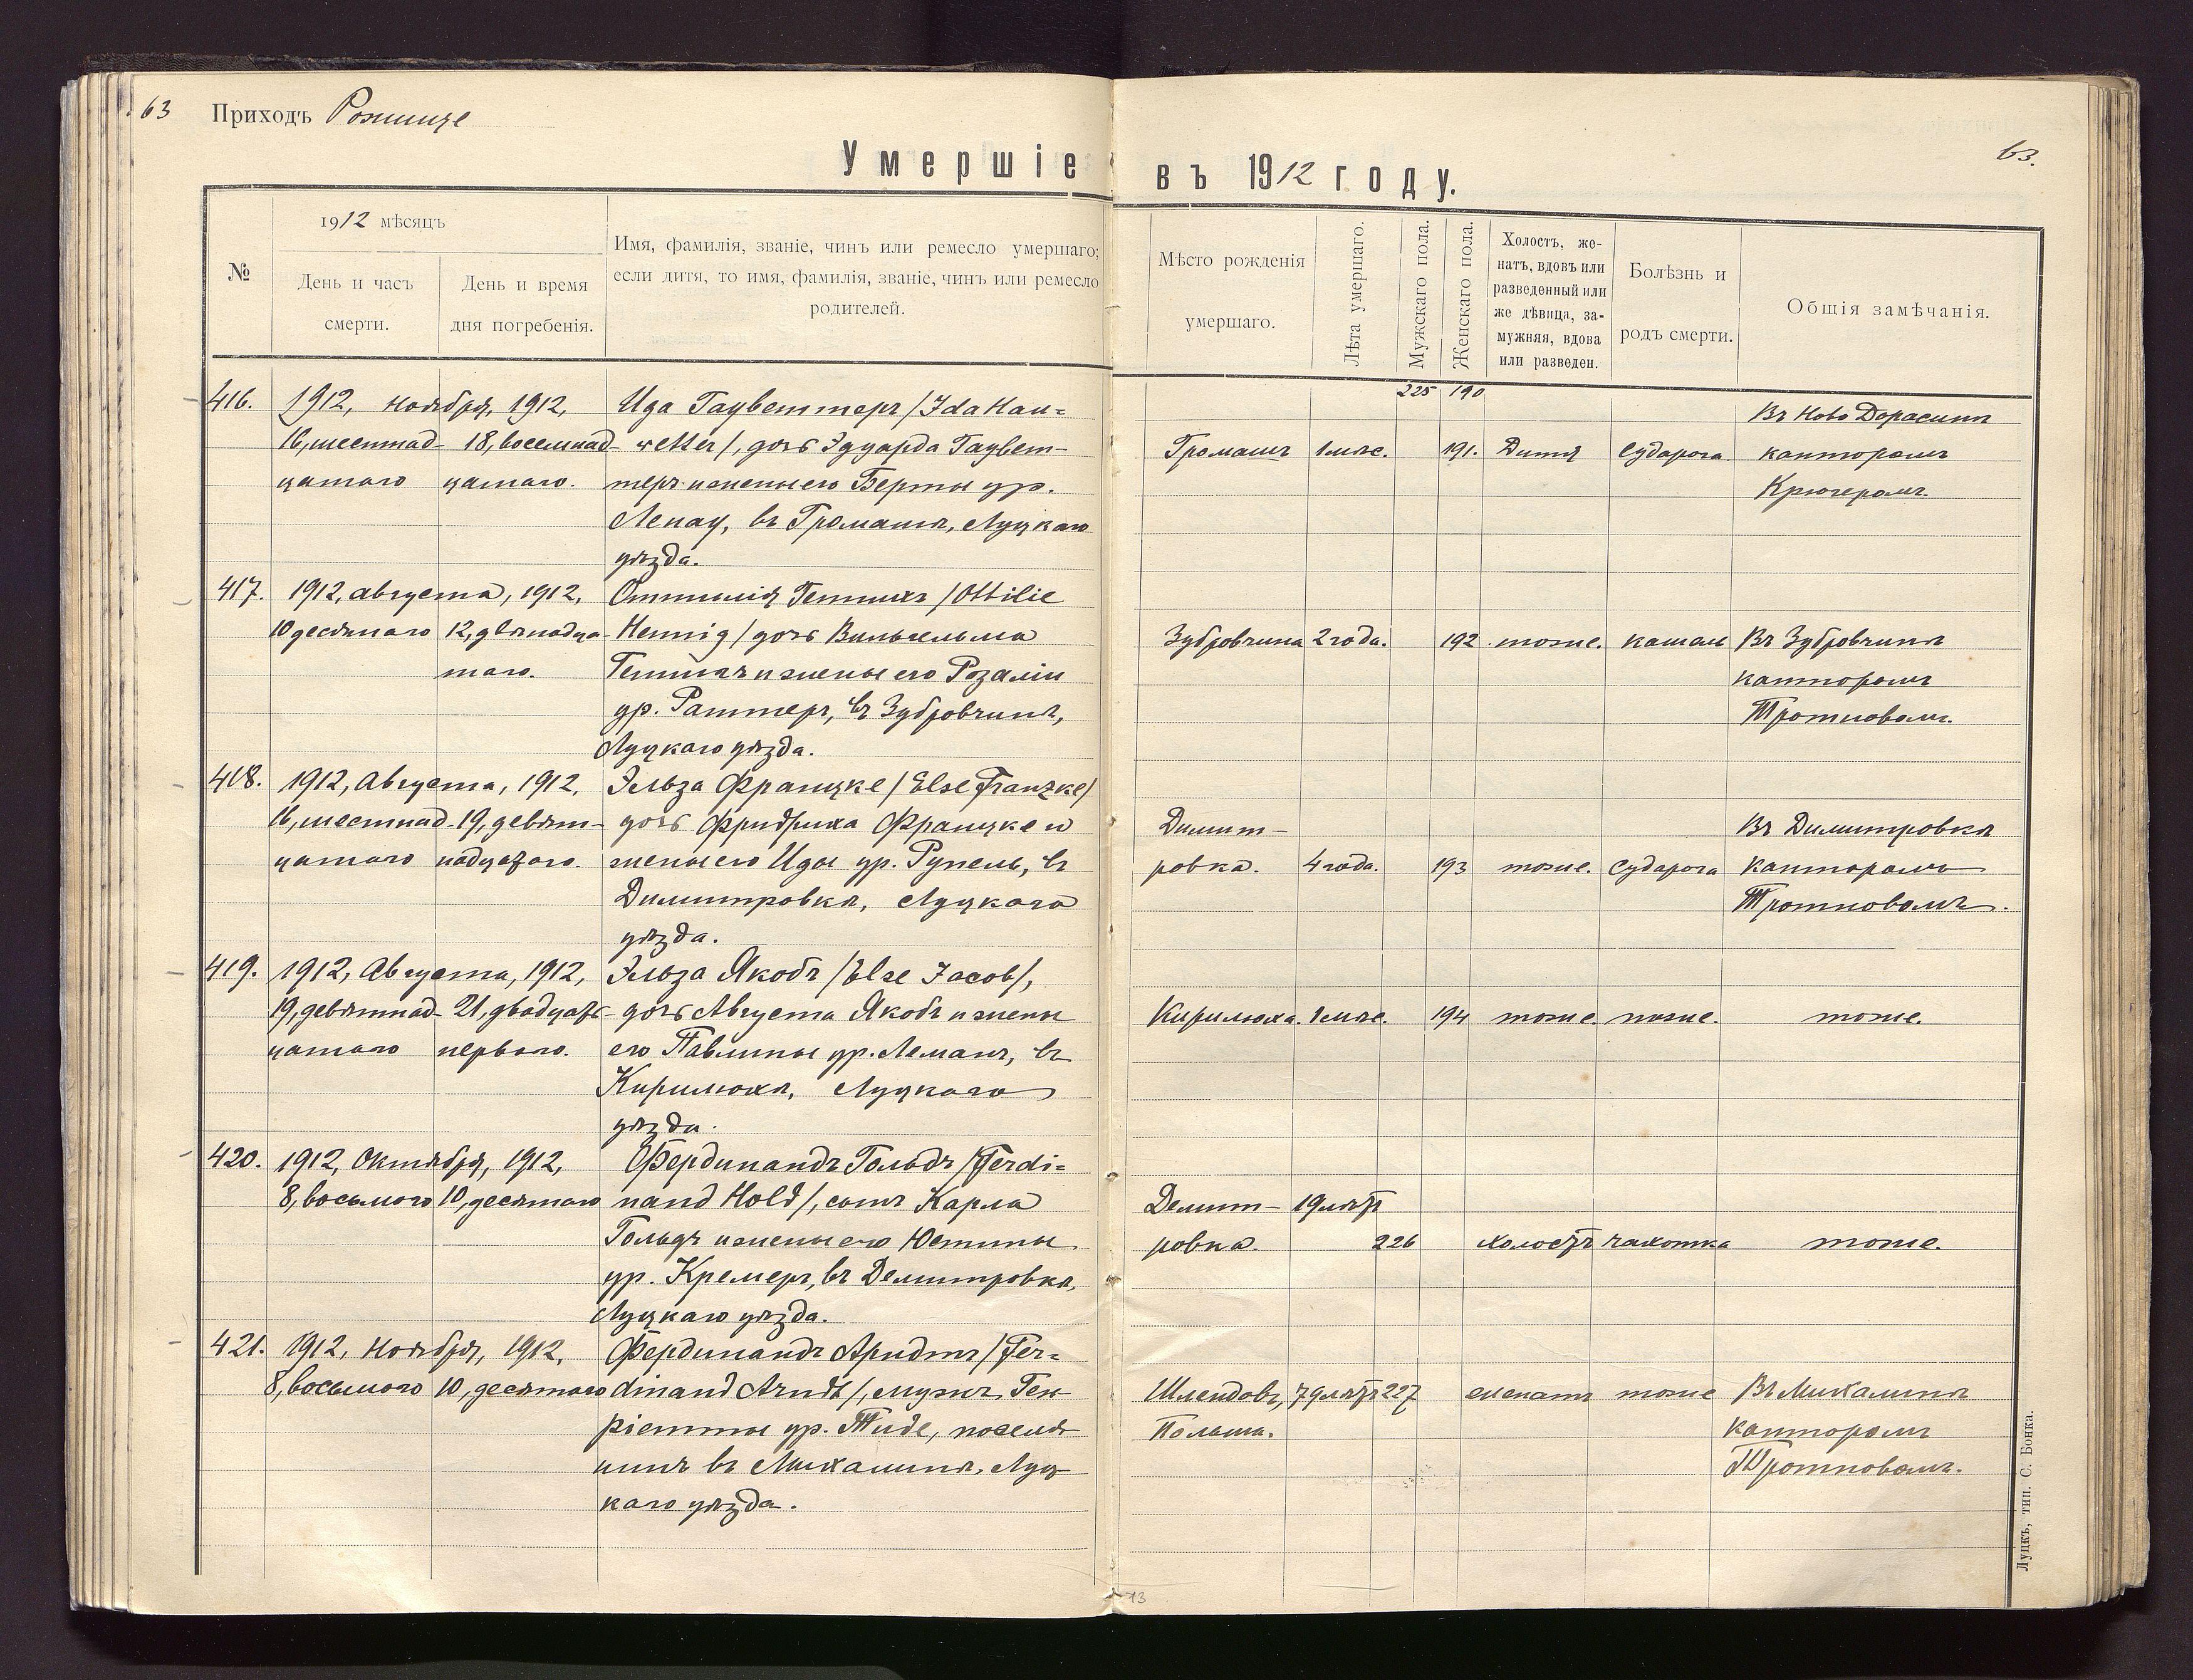 63 Приходъ Рожище
63.
Умершіе въ 1912 году.
№
1912 мѣсяцъ
День и часъ смерти.
День и время дня погребенія.
Имя, фамилія, званіе, чинъ или ремесло умершаго;
если дитя, то имя, фамилія, званіе, чинъ или ремесло
родителей.
Мѣсто рожденія умершаго.
Лѣта умершаго.
Мужскаго пола.
Женскаго пола.
Холостъ, же-
натъ, вдовъ или
разведенный или
же дѣвица, за-
мужняя, вдова
или разведен.
Болѣзнь и родъ смерти.
Общія замѣчанія.
225 190
416. 1912, ноября, 1912, Ида Гауветтеръ /Ida Hau= Въ Ново Дорасинѣ
16, шестнад- 18, восемнад- wetter/, дочь Эдуарда Гаувет- Громашъ 1 мѣс. 191. Дитя Судорога канторомъ
цатаго цатаго. теръ и жены его Берты ур. Крюгеромъ.
Ленау, въ Громашѣ, Луцкаго
уѣзда.
417. 1912, августа, 1912, Оттилія Геннихъ /Ottilie
10 десятаго 12, двѣнадца- Hennig/ дочь Вильгельма Зубровчина 2 года. 192 тоже. кашель Въ Зубровчинѣ
таго. Геннихъ и жены его Розаліи канторомъ
ур. Раттеръ, въ Зубровчинѣ, Тротновомъ.
Луцкаго уѣзда.
418. 1912, Августа, 1912, Эльза Францке /Else Franzke/
16, шестнад- 19, девят- дочь Фридриха Францке и Димит- Въ Димитровкѣ
цатаго надцатого. жены его Иды ур. Рупель, въ ровка. 4 года. 193 тоже. Судорога канторомъ
Димитровкѣ, Луцкаго Тротновомъ.
уѣзда.
419. 1912, Августа, 1912, Эльза Якобъ /Else Jacob/,
19, девятнад- 21, двадцать дочь Августа Якобъ и жены Кирилюха. 1 мѣс. 194 тоже. тоже. тоже.
цатаго перваго. его Павлины ур. Леманъ, въ
Кирилюхѣ, Луцкаго
уѣзда.
420. 1912, Октября, 1912, Фердинандъ Гольдъ /Ferdi=
8, восьмого 10, десятаго nand Hold/, сынъ Карла Демит- 19 лѣтъ
Гольдъ и жены его Юстины ровка. 226 холостъ чахотка тоже.
ур. Кремеръ, въ Демитровкѣ,
Луцкаго уѣзда.
421. 1912, Ноября, 1912, Фердинандъ Арндтъ /Fer=
8, восьмого 10, десятаго dinand Arndt/, мужъ Ген- Шлендовъ, 79 лѣтъ 227 женатъ тоже Въ Михалинѣ
ріетты ур. Тиде, поселя- Польша. канторомъ
нинъ въ Михалинѣ, Луц- Тротновомъ.
каго уѣзда.
Луцкъ, тип. С. Бонка.